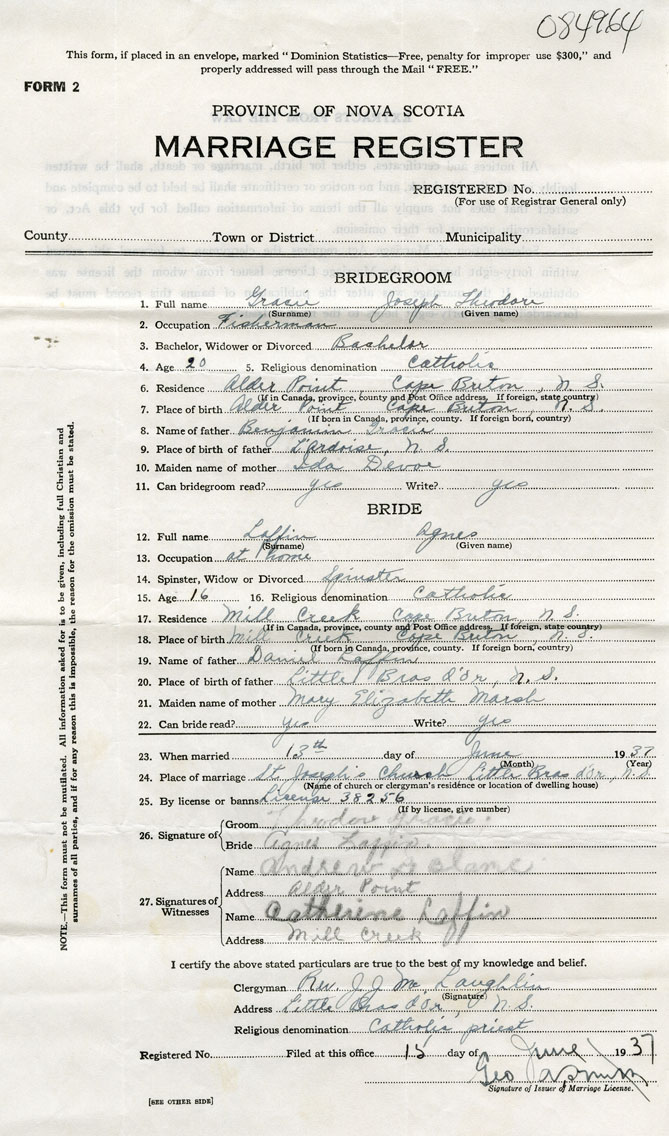 084964
This form, if placed in an envelope, marked "Dominion Statistics—Free, penalty for improper use $300," and
properly addressed will pass through the Mail "FREE."
FORM 2
PROVINCE OF NOVA SCOTIA
MARRIAGE REGISTER
REGISTERED No.
(For use of Registrar General only)
County Town or District Municipality
BRIDEGROOM
1. Full name Gracie Joseph Theodore
(Surname) (Given name)
2. Occupation Fisherman
3. Bachelor, Widower or Divorced Bachelor
4. Age 20 5. Religious denomination Catholic
6. Residence Alder Point, Cape Breton, N. S.
(If in Canada, province, county and Post Office address. If foreign, state country)
7. Place of birth Alder Point Cape Breton, N. S.
(If born in Canada, province, county. If foreign born, country)
8. Name of father Benjamin Gracie
9. Place of birth of father L'Ardoise, N. S.
10. Maiden name of mother Ida Devoe
11. Can bridegroom read? yes Write? yes
BRIDE
12. Full name Laffin Agnes
(Surname) (Given name)
13. Occupation at home
14. Spinster, Widow or Divorced Spinster
15. Age 16 16. Religious denomination Catholic
17. Residence Mill Creek Cape Breton, N. S.
(If in Canada, province, county and Post Office address. If foreign, state country)
18. Place of birth Mill Creek Cape Breton, N. S.
(If born in Canada, province, county. If foreign born, country)
19. Name of father Daniel Laffin
20. Place of birth of father Little Bras d'Or, N. S.
21. Maiden name of mother Mary Elizabeth Marsh
22. Can bride read? yes Write? yes
23. When married 13th day of June 1937
(Month) (Year)
24. Place of marriage St Joseph's Church Little Bras d'Or, N. S.
(Name of church or clergyman's residence or location of dwelling house)
25. By license or banns License 38256
(If by license, give number)
26. Signature of
Groom Theodore Gracie.
Bride Agnes Laffin.
27. Signatures of Witnesses
Name Andrew
Address Alder Point
Name Catherine Laffin
Address Mill Creek
I certify the above stated particulars are true to the best of my knowledge and belief.
Clergyman Rev. J J McLaughlin
(Signature)
Address Little Bras d'Or, N. S.
Religious denomination Catholic priest
Registered No. Filed at this office 15 day of June 1937
Geo
Signature of Issuer of Marriage License.
[SEE OTHER SIDE]
NOTE.—This form must not be mutilated. All information asked for is to be given, including full Christian and
surnames of all parties, and if for any reason this is impossible, the reason for the omission must be stated.